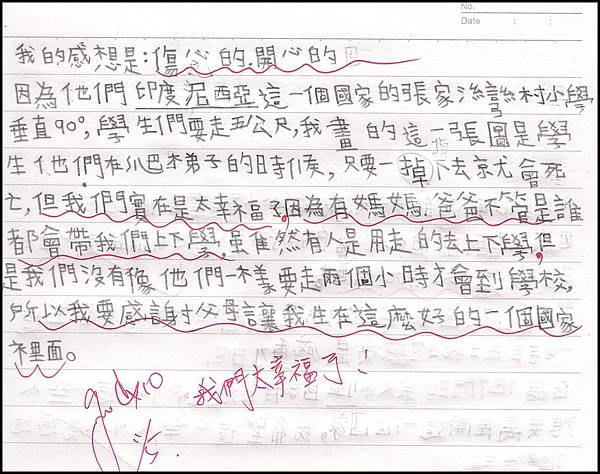 No.
Date : :
我的感想是:傷心的.開心的
因為他們印度泥西亞這一個國家的張家灣村小學
垂直90°,學生們要走五公尺,我畫的這一張圖是學
生他們在爬梯子的時候,只要一掉下去就會死
亡,但我們實在是太幸福了,因為有媽媽.爸爸不管是誰
都會帶我們上下學,雖然有人是用走的去上下學,但
是我們沒有像他們一樣要走兩個小時才會到學校,
所以我要感謝父母讓我生在這麼好的一個國家
裡面。
我們太幸福了!